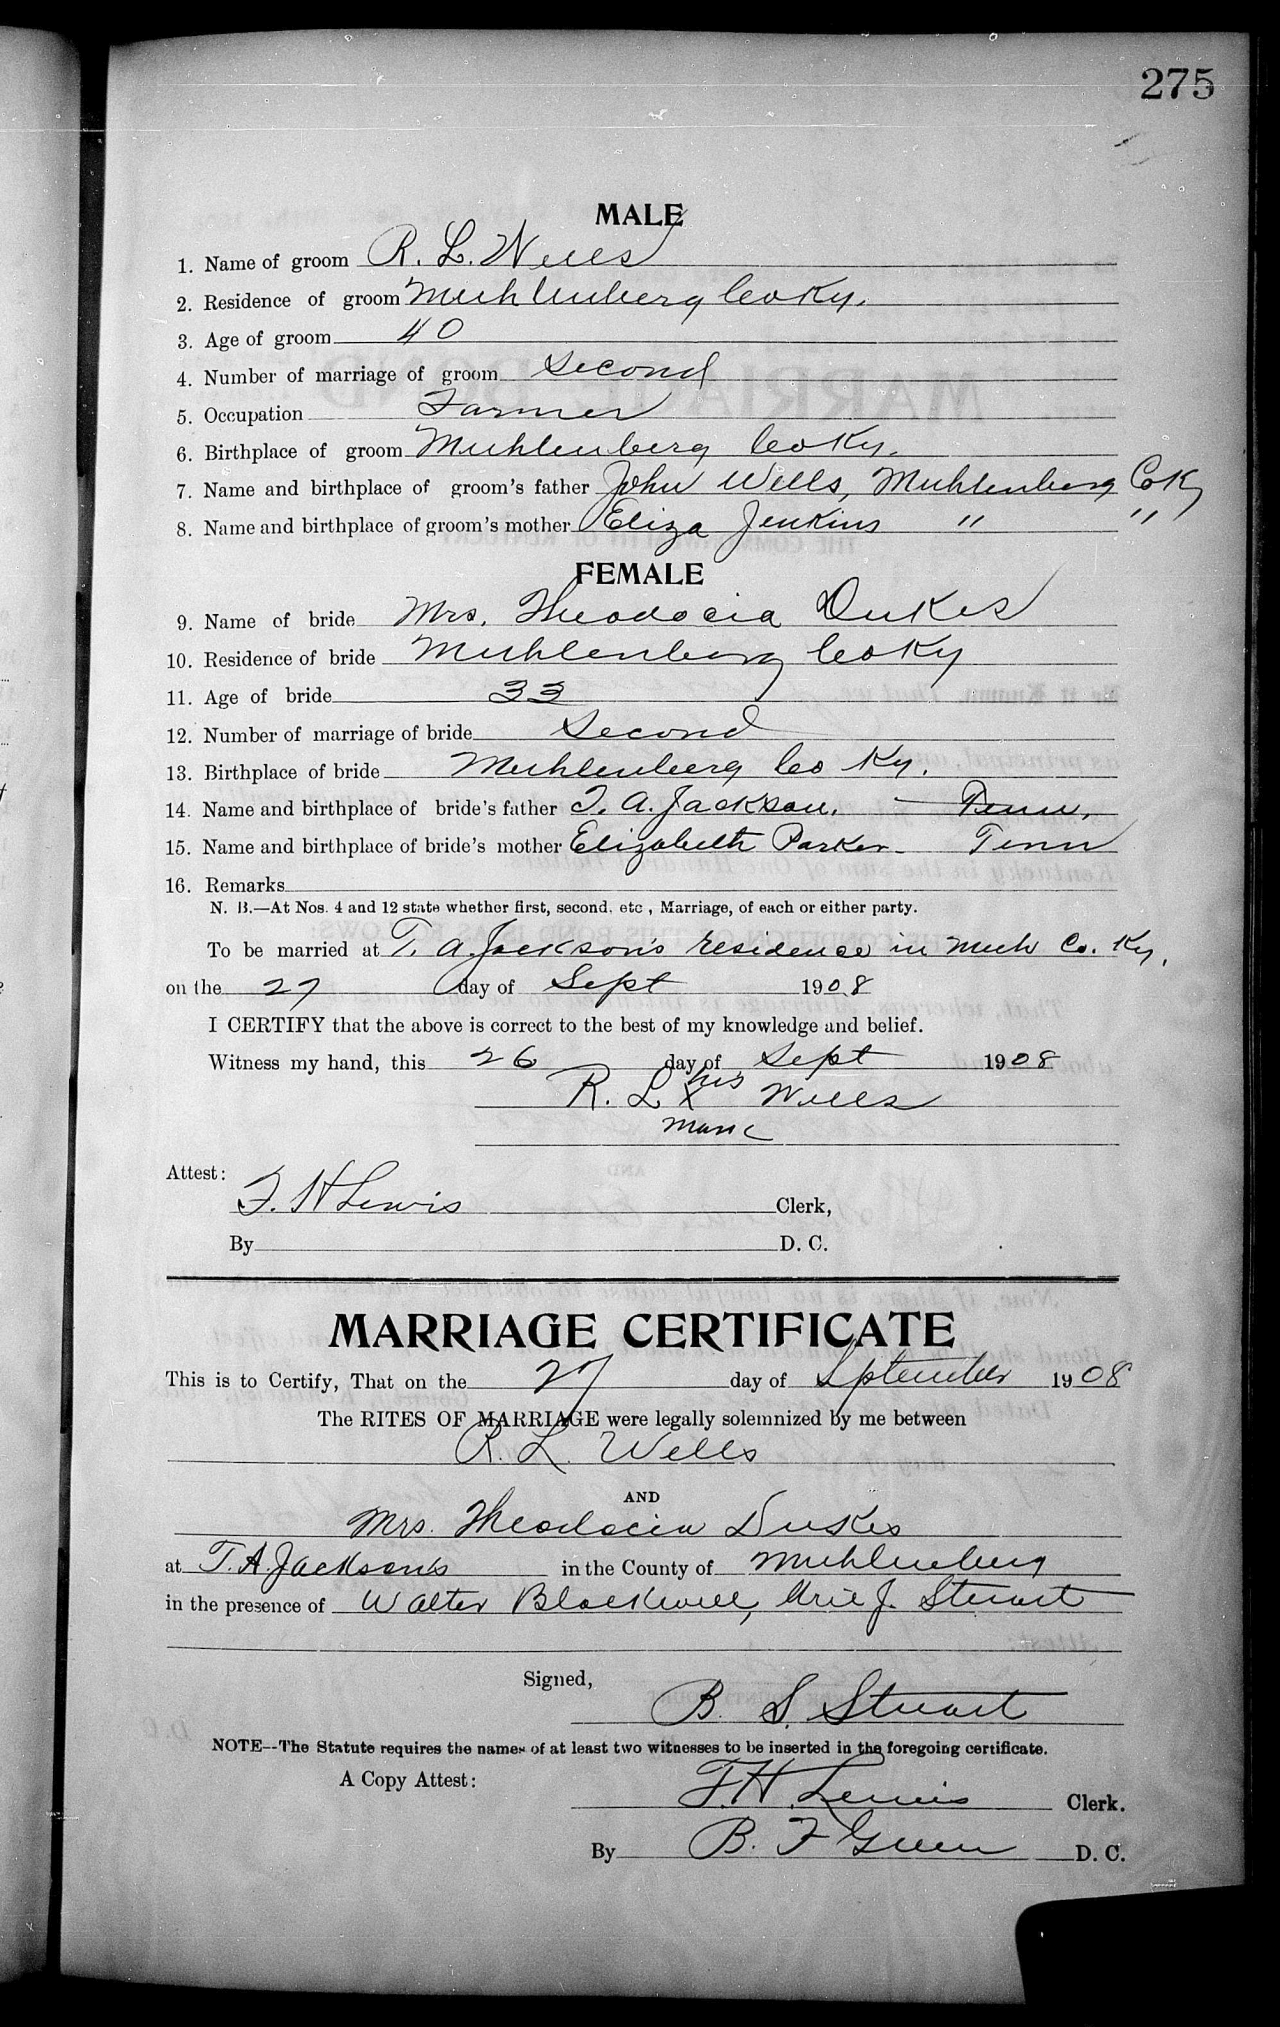 275
MALE
1. Name of groom R. L. Wells
2. Residence of groom Muhlenberg Co Ky.
3. Age of groom 40
4. Number of marriage of groom Second
5. Occupation Farmer
6. Birthplace of groom Muhlenberg Co Ky.
7. Name and birthplace of groom's father John Wells, Muhlenberg Co Ky
8. Name and birthplace of groom's mother Eliza Jenkins " "
FEMALE
9. Name of bride Mrs. Theodocia Dukes
10. Residence of bride Muhlenberg Co Ky
11. Age of bride 33
12. Number of marriage of bride Second
13. Birthplace of bride Muhlenberg Co Ky.
14. Name and birthplace of bride's father T. A. Jackson. — Tenn.
15. Name and birthplace of bride's mother Elizabeth Parker - Tenn
16. Remarks
N. B.—At Nos. 4 and 12 state whether first, second, etc , Marriage, of each or either party.
To be married at T. A. Jackson's residence in Muh Co. Ky.
on the 27 day of Sept 1908
I CERTIFY that the above is correct to the best of my knowledge and belief.
Witness my hand, this 26 day of Sept 1908
his
R. L. X Wells
mark
Attest:
T. H Lewis Clerk,
By D. C.
MARRIAGE CERTIFICATE
This is to Certify, That on the 27 day of September 1908
The RITES OF MARRIAGE were legally solemnized by me between
R. L. Wells
AND
Mrs. Theodocia Dukes
at T. A. Jackson's in the County of Muhlenberg
in the presence of Walter Blackwell, Urie J. Stuart
Signed,
B. S. Stuart
NOTE--The Statute requires the names of at least two witnesses to be inserted in the foregoing certificate.
A Copy Attest:
T. H. Lewis Clerk.
By B. F Green D. C.